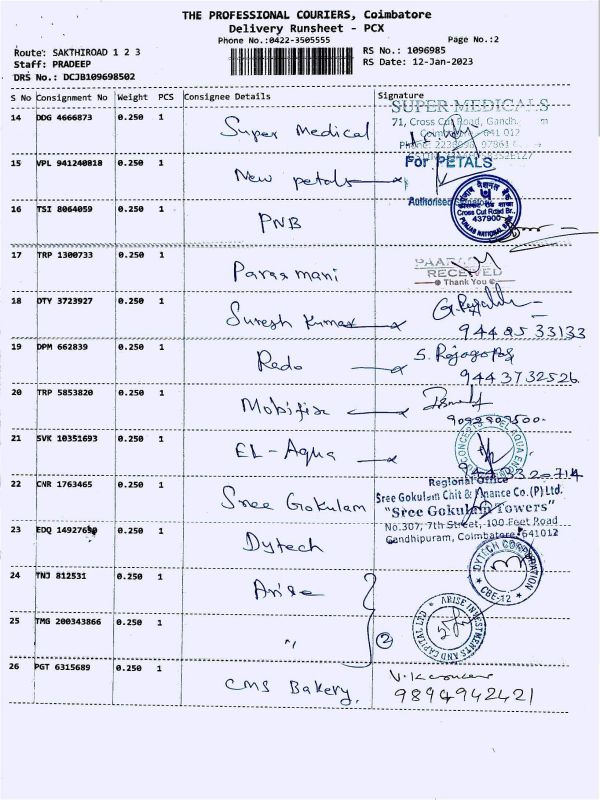 THE PROFESSIONAL COURIERS, Coimbatore
Delivery Runsheet - PCX
Phone No.:0422-3505555
Page No.:2
Route: SAKTHIROAD 1 2 3
RS No.: 1096985
Staff: PRADEEP
RS Date: 12-Jan-2023
DRS No.: DCJB109698502
S No Consignment No Weight PCS Consignee Details Signature
14 DDG 4666873 0.250 1 Super Medical
SUPER MEDICALS
71, Cross Cut Road, Gandh
641 012
15 VPL 941240818 0.250 1 New petals
For PETALS
Authorised
16 TSI 8064059 0.250 1 PNB
Cross Cut Road Br.,
437900
PUNJAB NATIONAL BANK
17 TRP 1300733 0.250 1 Paras mani
RECEIVED
Thank You
18 DTY 3723927 0.250 1 Suresh Kumar
94485 33133
19 DPM 662839 0.250 1 Redo
S. Rajagopal
9443732526
20 TRP 5853820 0.250 1 Mobifix
21 SVK 10351693 0.250 1 EL-Aqua
22 CNR 1763465 0.250 1 Sree Gokulam
Regional Office
Sree Gokulam Chit & Finance Co.(P) Ltd.
"Sree Gokulam Towers"
No.307, 7th Street, 100 Feet Road
Gandhipuram, Coimbatore 641012
23 EDQ 1 0.250 1 Dytech
DYTECH CORPORATION
CBE-12
24 TNJ 812531 0.250 1 Arise
ARISE INVESTMENTS AND CAPITAL LTD
25 TMG 200343866 0.250 1 "
2
26 PGT 6315689 0.250 1 CMS Bakery,
9894942421